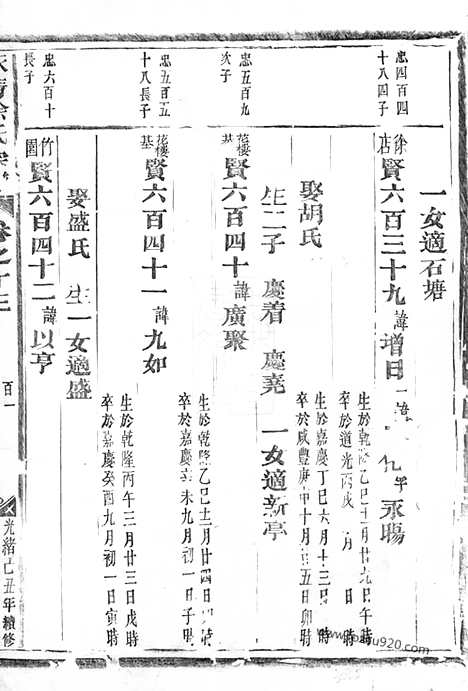 一女適石塘
忠四百四
十八四子
徐店
賢六百三十九諱增日
永賜
生於乾隆 丑 月廿九日午時
卒於道光丙戌 月 日 時
娶胡氏
生於嘉慶丁巳六月十三日 時
卒於咸豐庚申十月 五日卯時
生二子 慶着 慶堯 一女適新亭
忠五百九
次子
花樓基
賢六百四十諱廣聚
生於乾隆乙巳 月廿四日 時
卒於嘉慶 未九月初一日子時
忠五百五
十八長子
花樓基
賢六百四十一諱九如
生於乾隆丙午三月廿三日戌時
卒於嘉慶癸酉九月初一日寅時
娶盛氏 生一女適盛
忠六百十
長子
竹園
賢六百四十二諱以亨
徐氏宗
卷之十三
百一
光緒己丑年續修